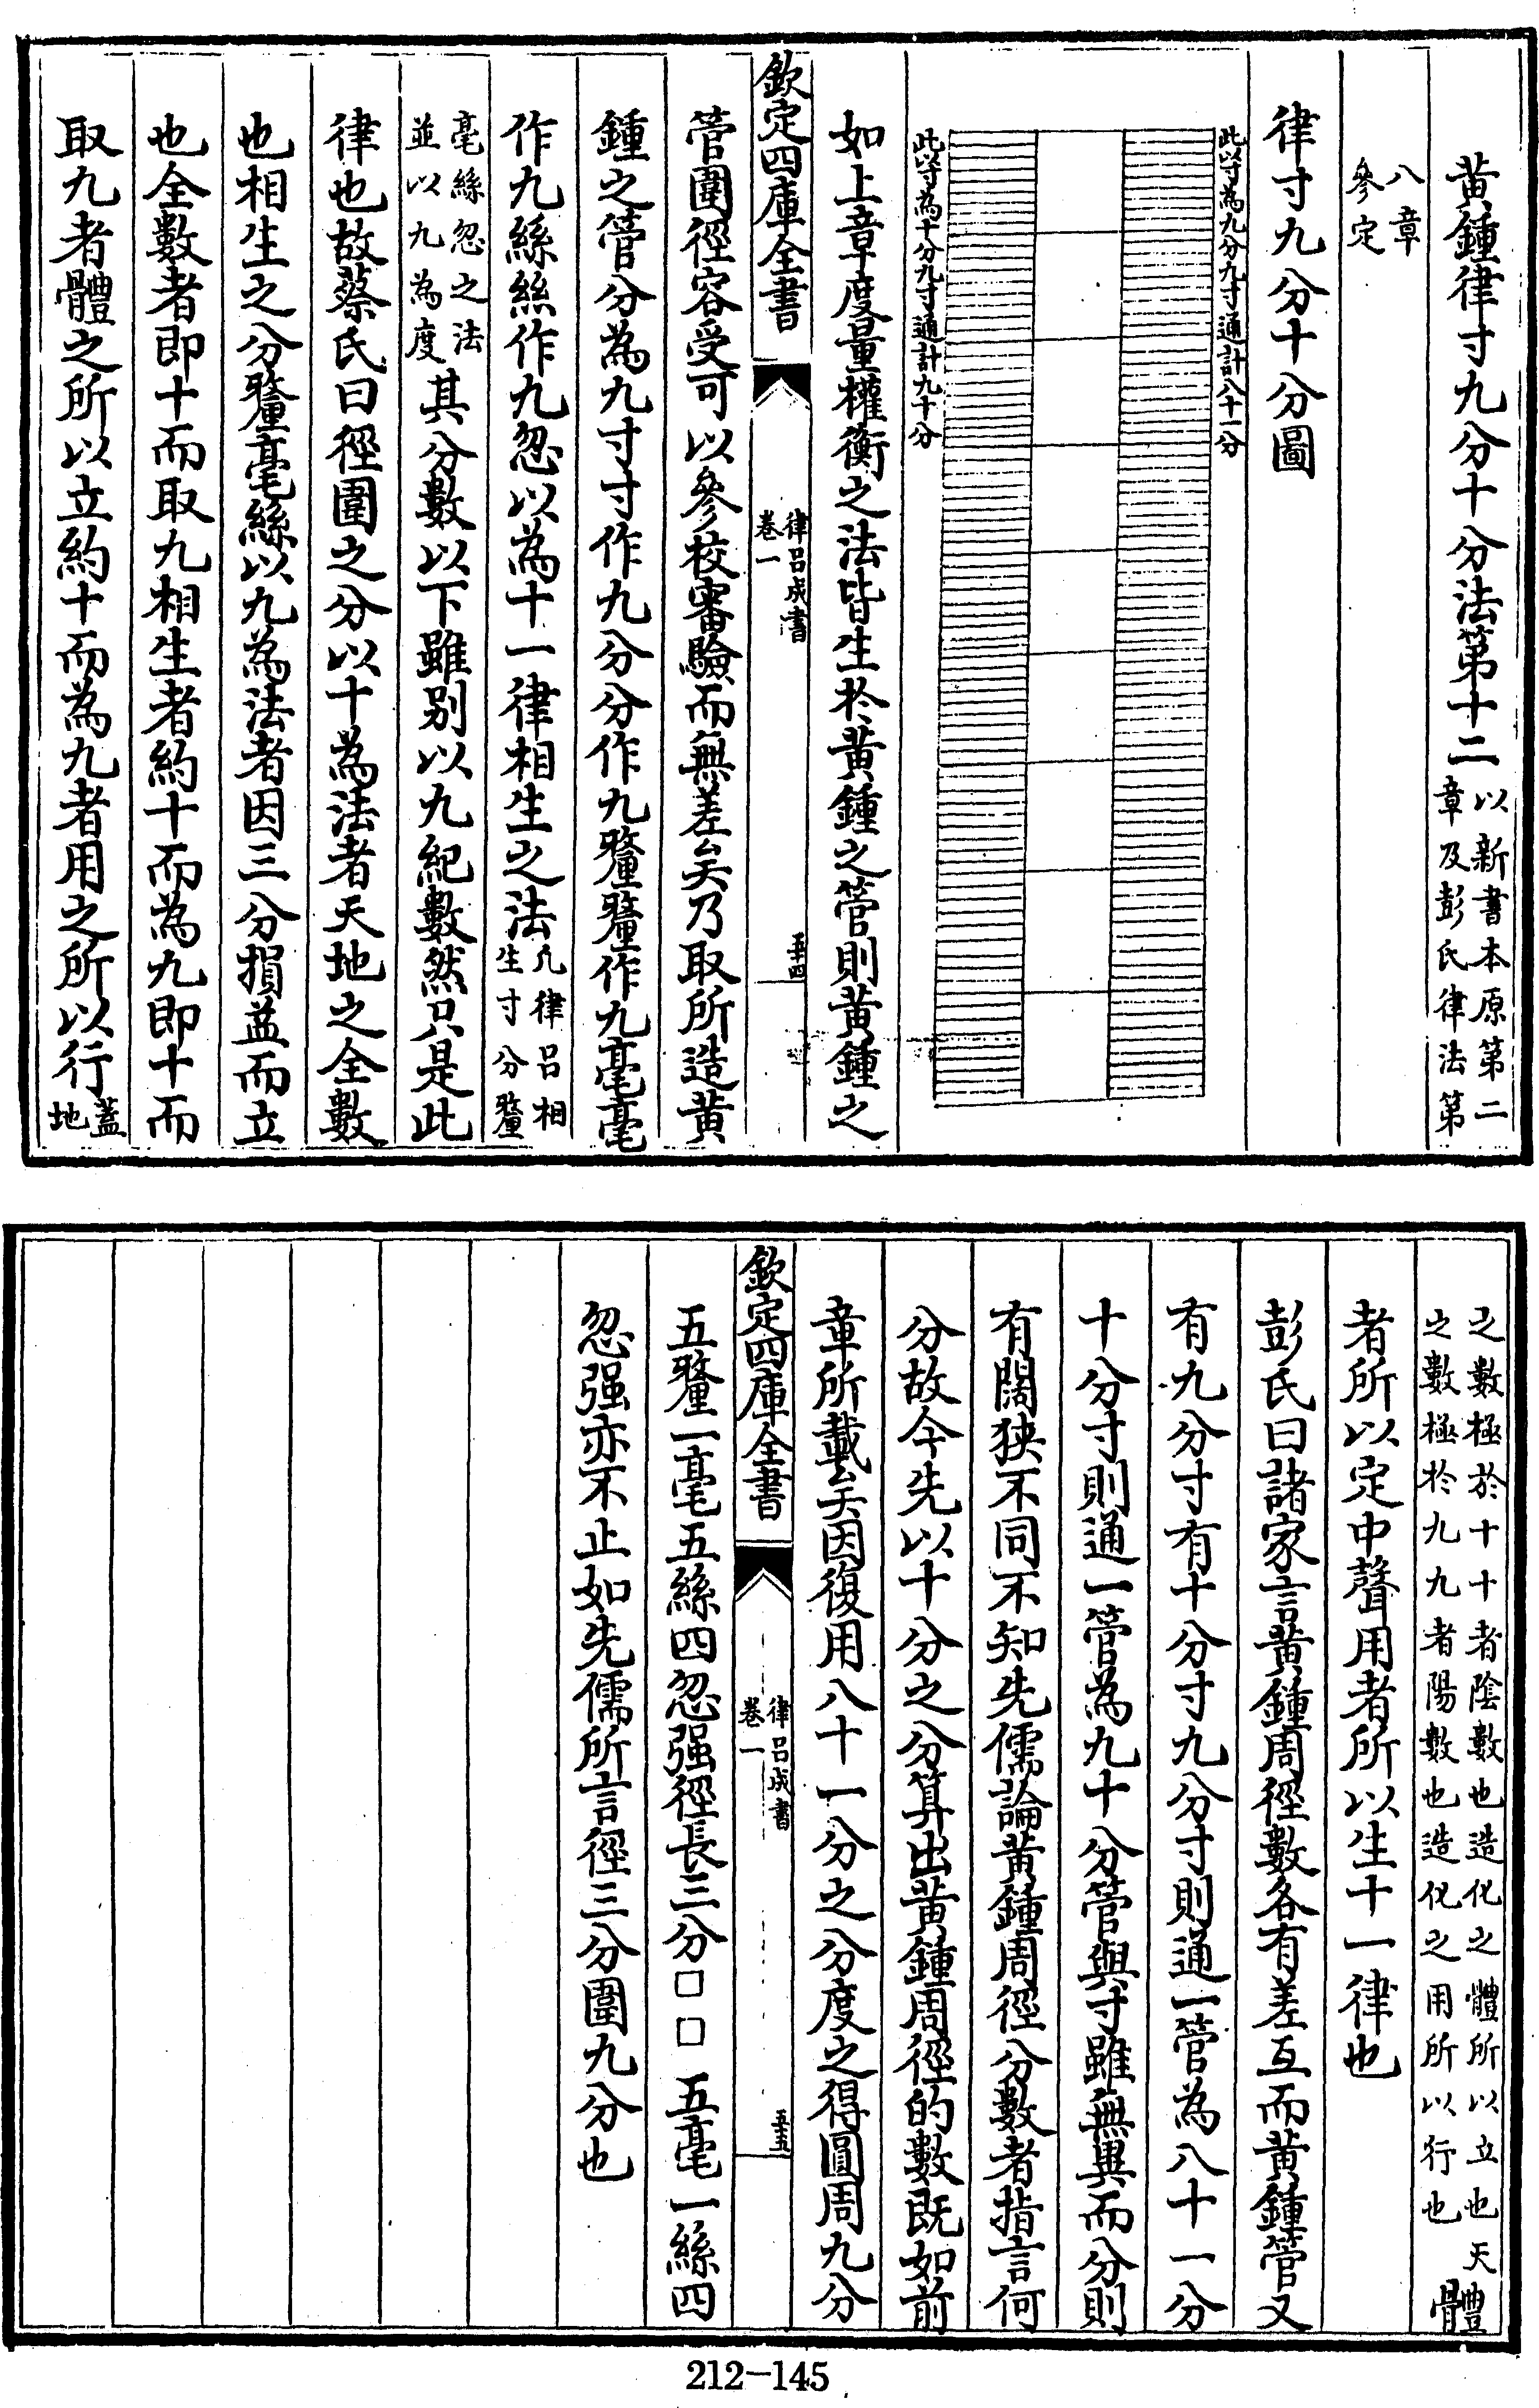 黃鍾律寸九分十分法第十二以新書本原第二章及彭氏律法第
八章參定
律寸九分十分圖
此以寸為九分九寸通計八十一分
此以寸為十分九寸通計九十分
如上章度量權衡之法皆生於黃鍾之管則黃鍾之
欽定四庫全書
律吕成書
卷一
五十四
管圍徑容受可以參校審驗而無差矣乃取所造黃
鍾之管分為九寸寸作九分分作九釐釐作九毫毫
作九絲絲作九忽以為十一律相生之法凡律吕相生寸分釐
毫絲忽之法並以九為度其分數以下雖别以九紀數然只是此
律也故蔡氏曰徑圍之分以十為法者天地之全數
也相生之分釐毫絲以九為法者因三分損益而立
也全數者即十而取九相生者約十而為九即十而
取九者體之所以立約十而為九者用之所以行蓋地
之數極於十十者陰數也造化之體所以立也天
之數極於九九者陽數也造化之用所以行也體
者所以定中聲用者所以生十一律也
彭氏曰諸家言黃鍾周徑數各有差互而黃鍾管又
有九分寸有十分寸九分寸則通一管為八十一分
十分寸則通一管為九十分管與寸雖無異而分則
有闊狹不同不知先儒論黃鍾周徑分數者指言何
分故今先以十分之分算出黃鍾周徑的數既如前
章所載矣因復用八十一分之分度之得圓周九分
欽定四庫全書
律吕成書
卷一
五十五
五釐一毫五絲四忽强徑長三分□□五毫一絲四
忽强亦不止如先儒所言徑三分圍九分也
212-145